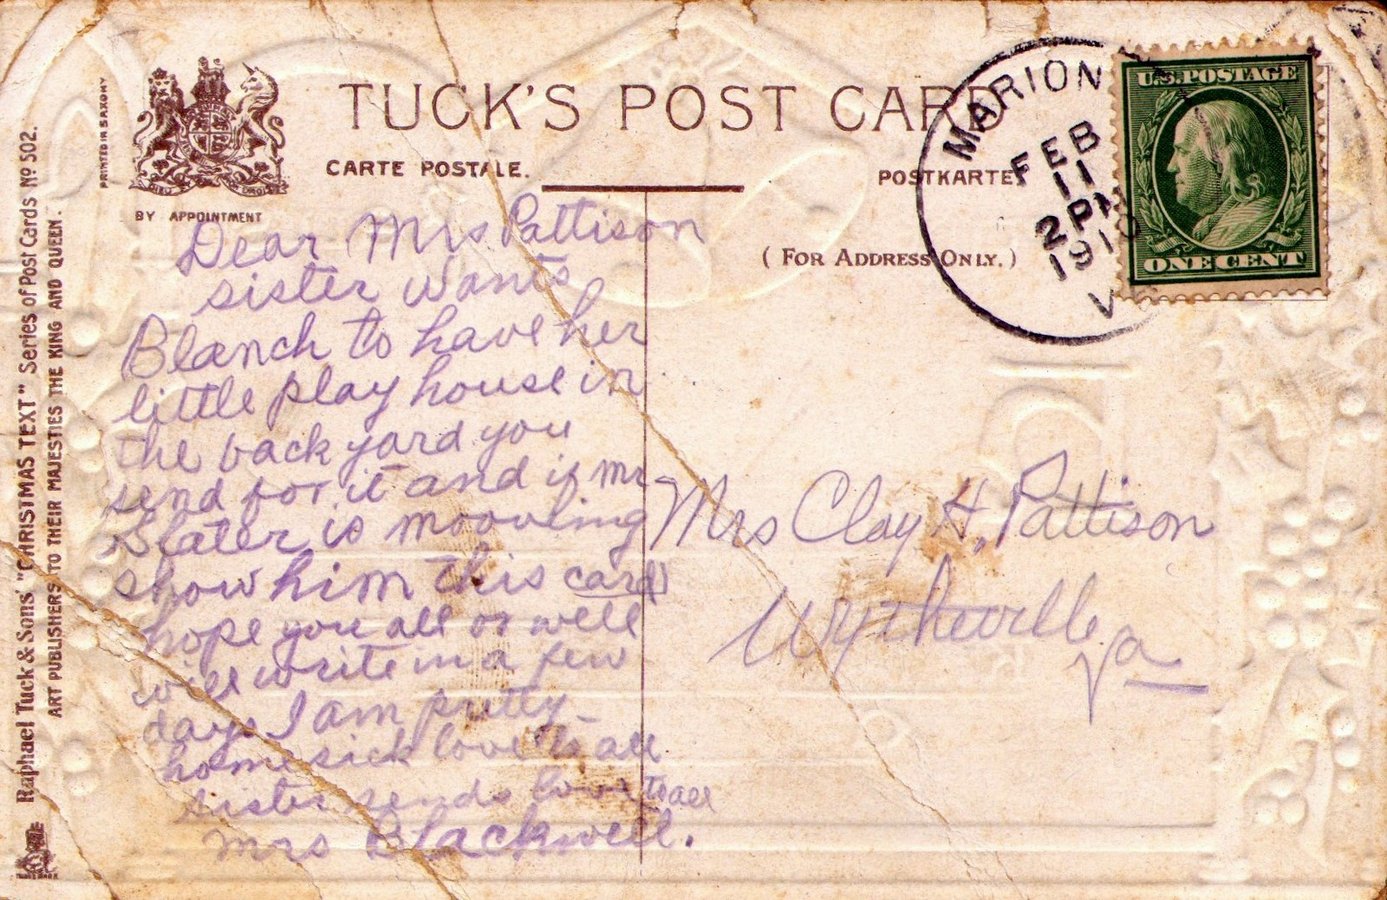 TUCK'S POST CARD
CARTE POSTALE.
POSTKARTE
(FOR ADDRESS ONLY.)
BY APPOINTMENT
PRINTED IN SAXONY
Raphael Tuck & Sons' "CHRISTMAS TEXT" Series of Post Cards № 502.
ART PUBLISHERS TO THEIR MAJESTIES THE KING AND QUEEN.
MARION
FEB
11
2 PM
1910
V
U.S. POSTAGE
ONE CENT
Dear Mrs Pattison
sister wants
Blanch to have her
little play house in
the back yard you
send for it and if Mr
Slater is mooving
show him this card
hope you all or well
will write in a few
days I am pretty
home sick love to all
sister sends love to all
Mrs Blackwell.
Mrs Clay H. Pattison
Wytheville
Va